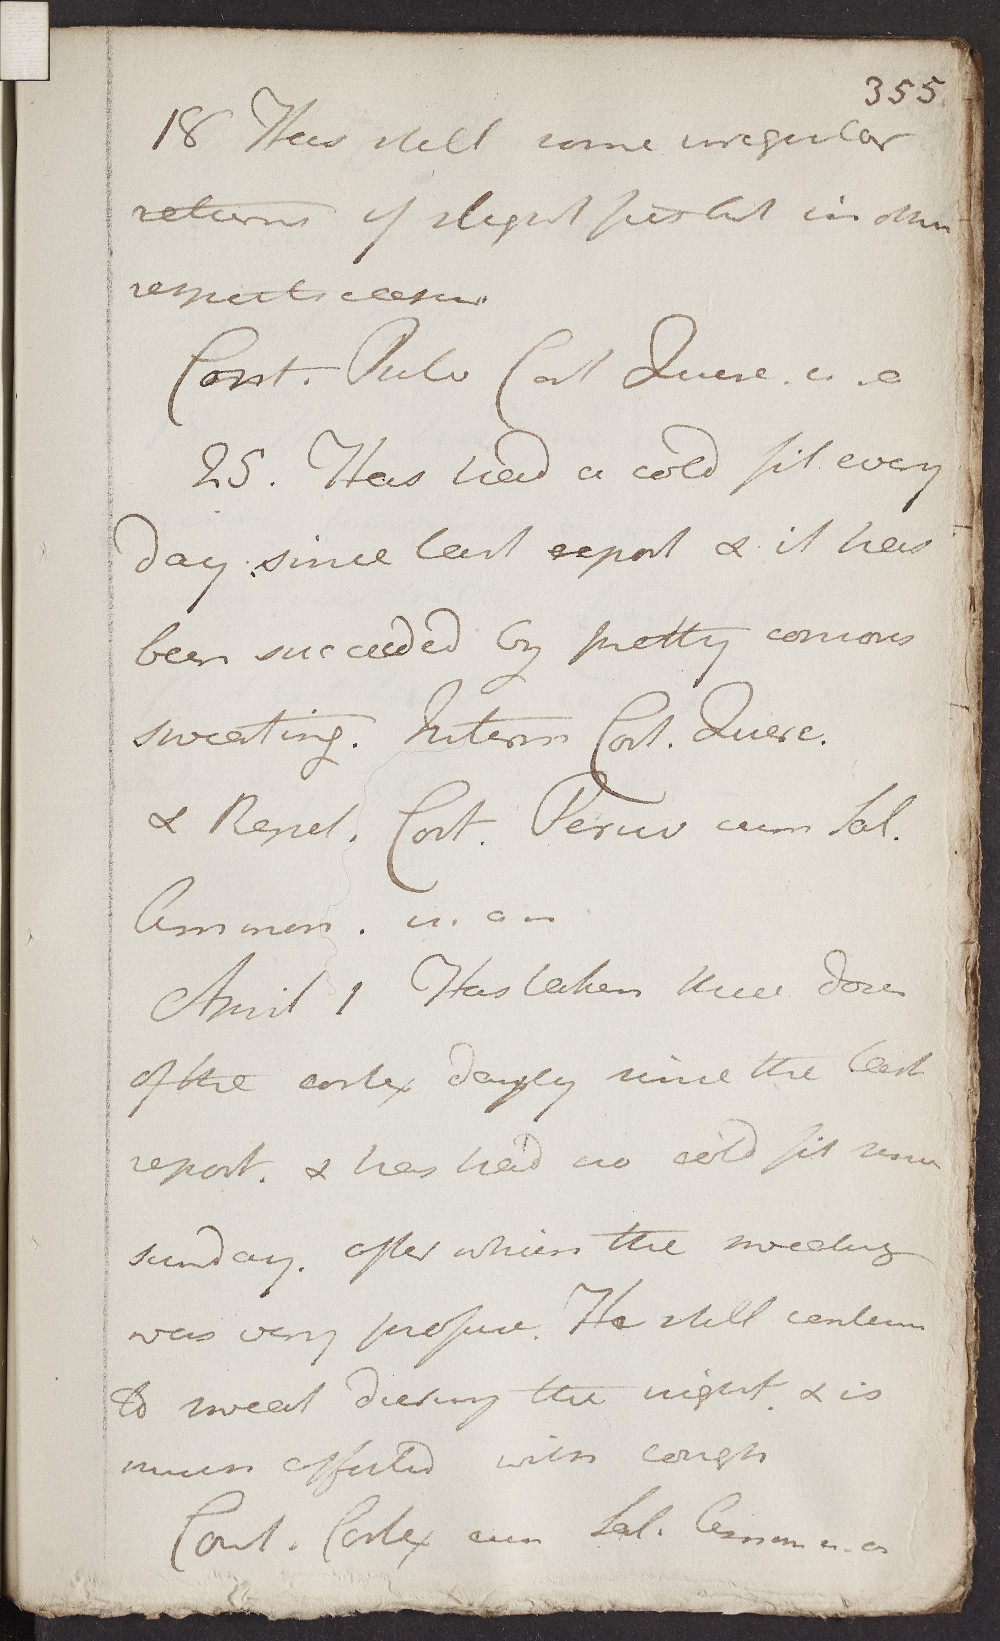 355
18 Has still some irregular
returns of slight fits but in other
respects easier.
Cont. Pulv Cort Querc. u. a
25. Has had a cold fit every
day since last report & it has
been succeeded by pretty copious
sweating. Interm Cort. Querc.
& Repet. Cort. Peruv cum Sal.
Ammon. u. a
April 1 Has taken three doses
of the cortex dayly since the last
report. & has had no cold fit since
sunday. after which the sweating
was very profuse. He still continues
to sweat during the night. & is
much affected with cough
Cont. Cortex cum Sal. Ammon u. a